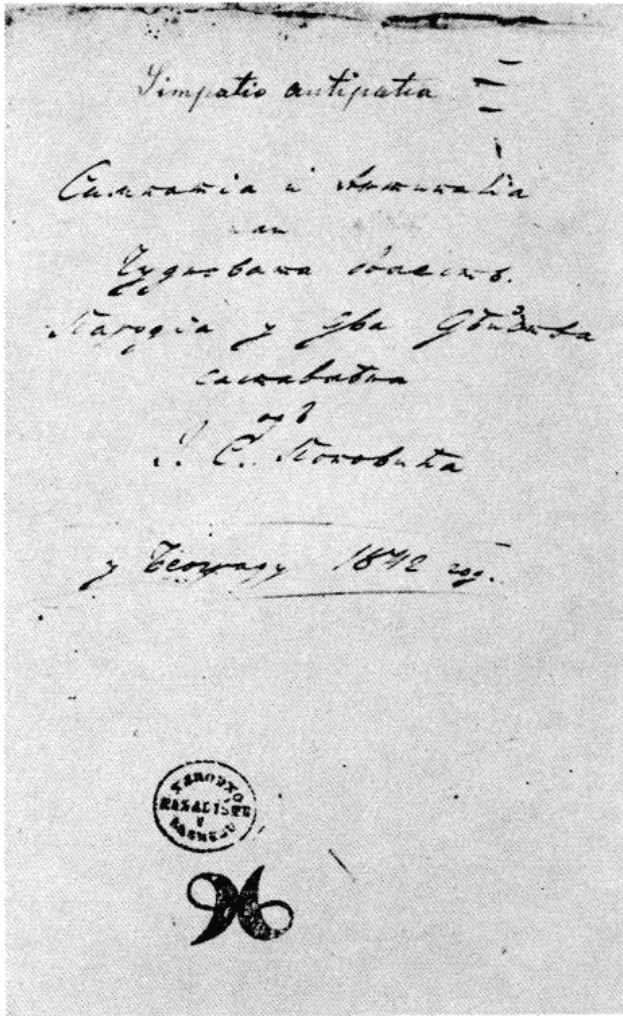 Simpatio antipatia
Симпатіа и Антипатіа
или
Чудновата болесть.
Пародіа у два Дѣйства
саставлѣна
одъ
І. С. Поповића
у Београду 1842 год.
NARODNO
KAZALIŠTE
U
ZAGREBU